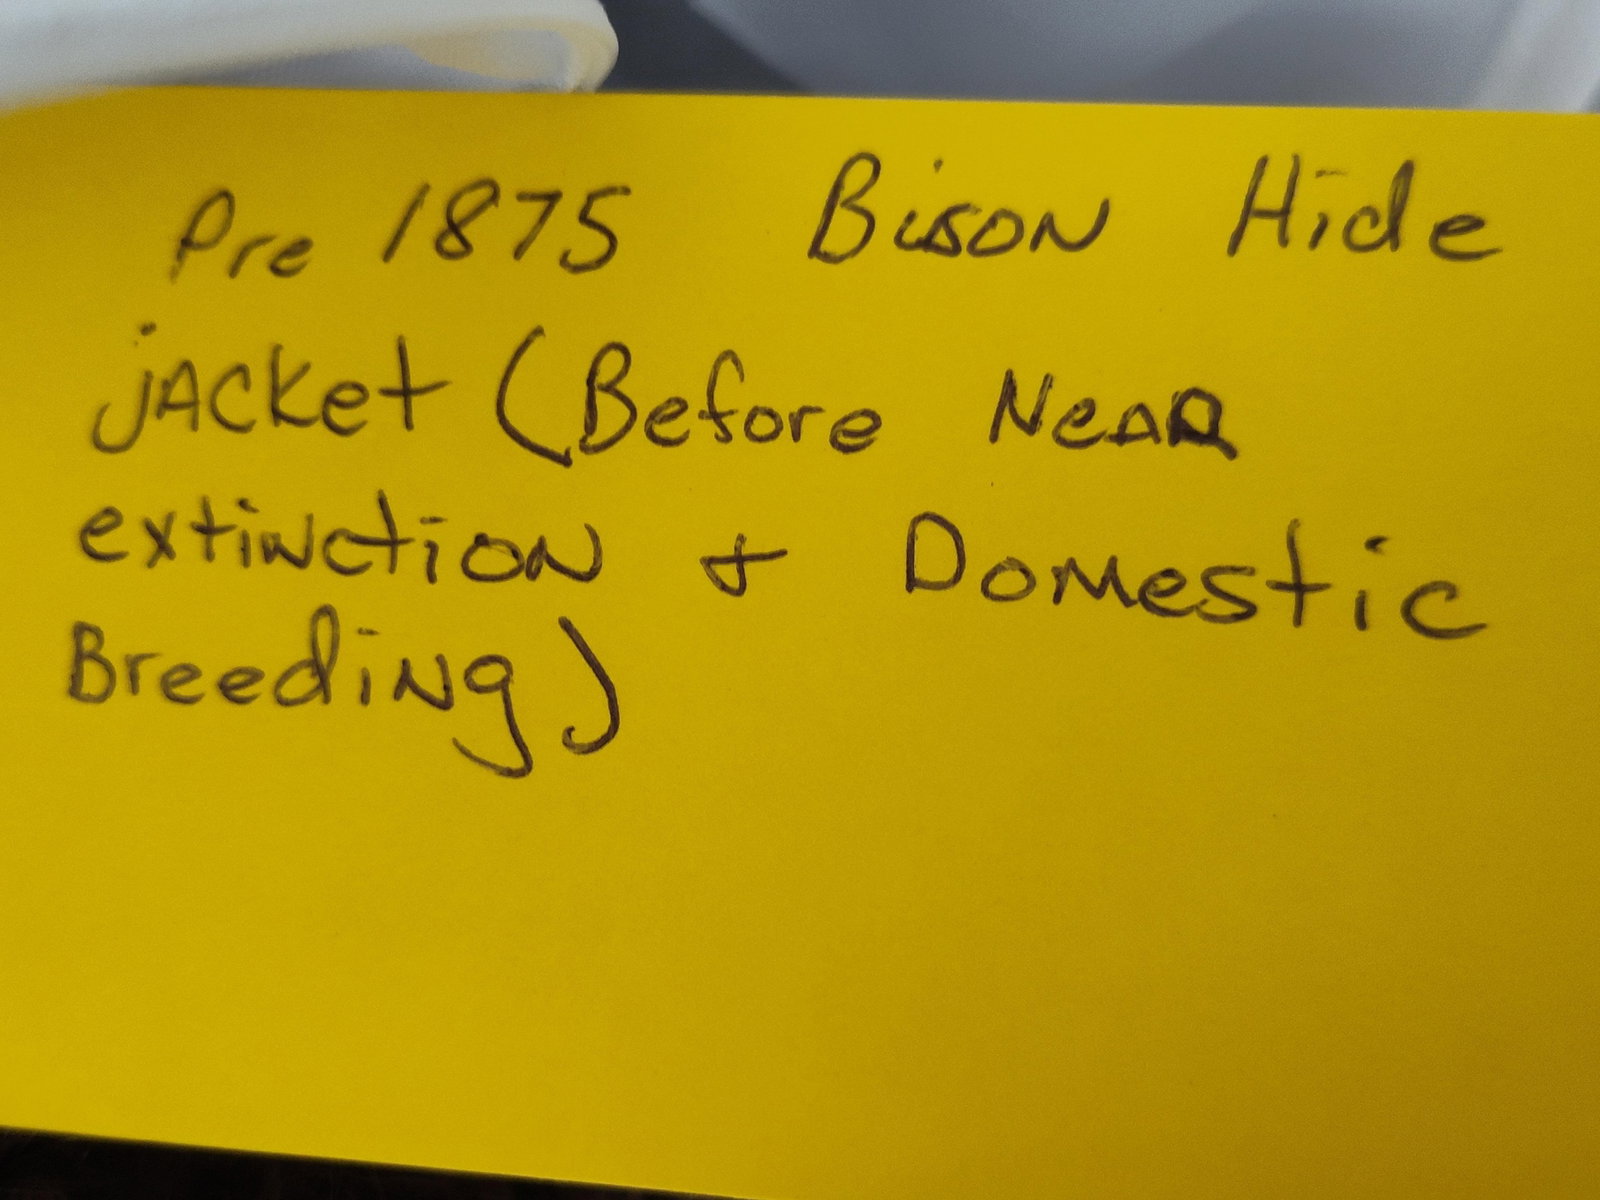 Pre 1875 Bison Hide
jacket (Before Near
extinction & Domestic
Breeding)